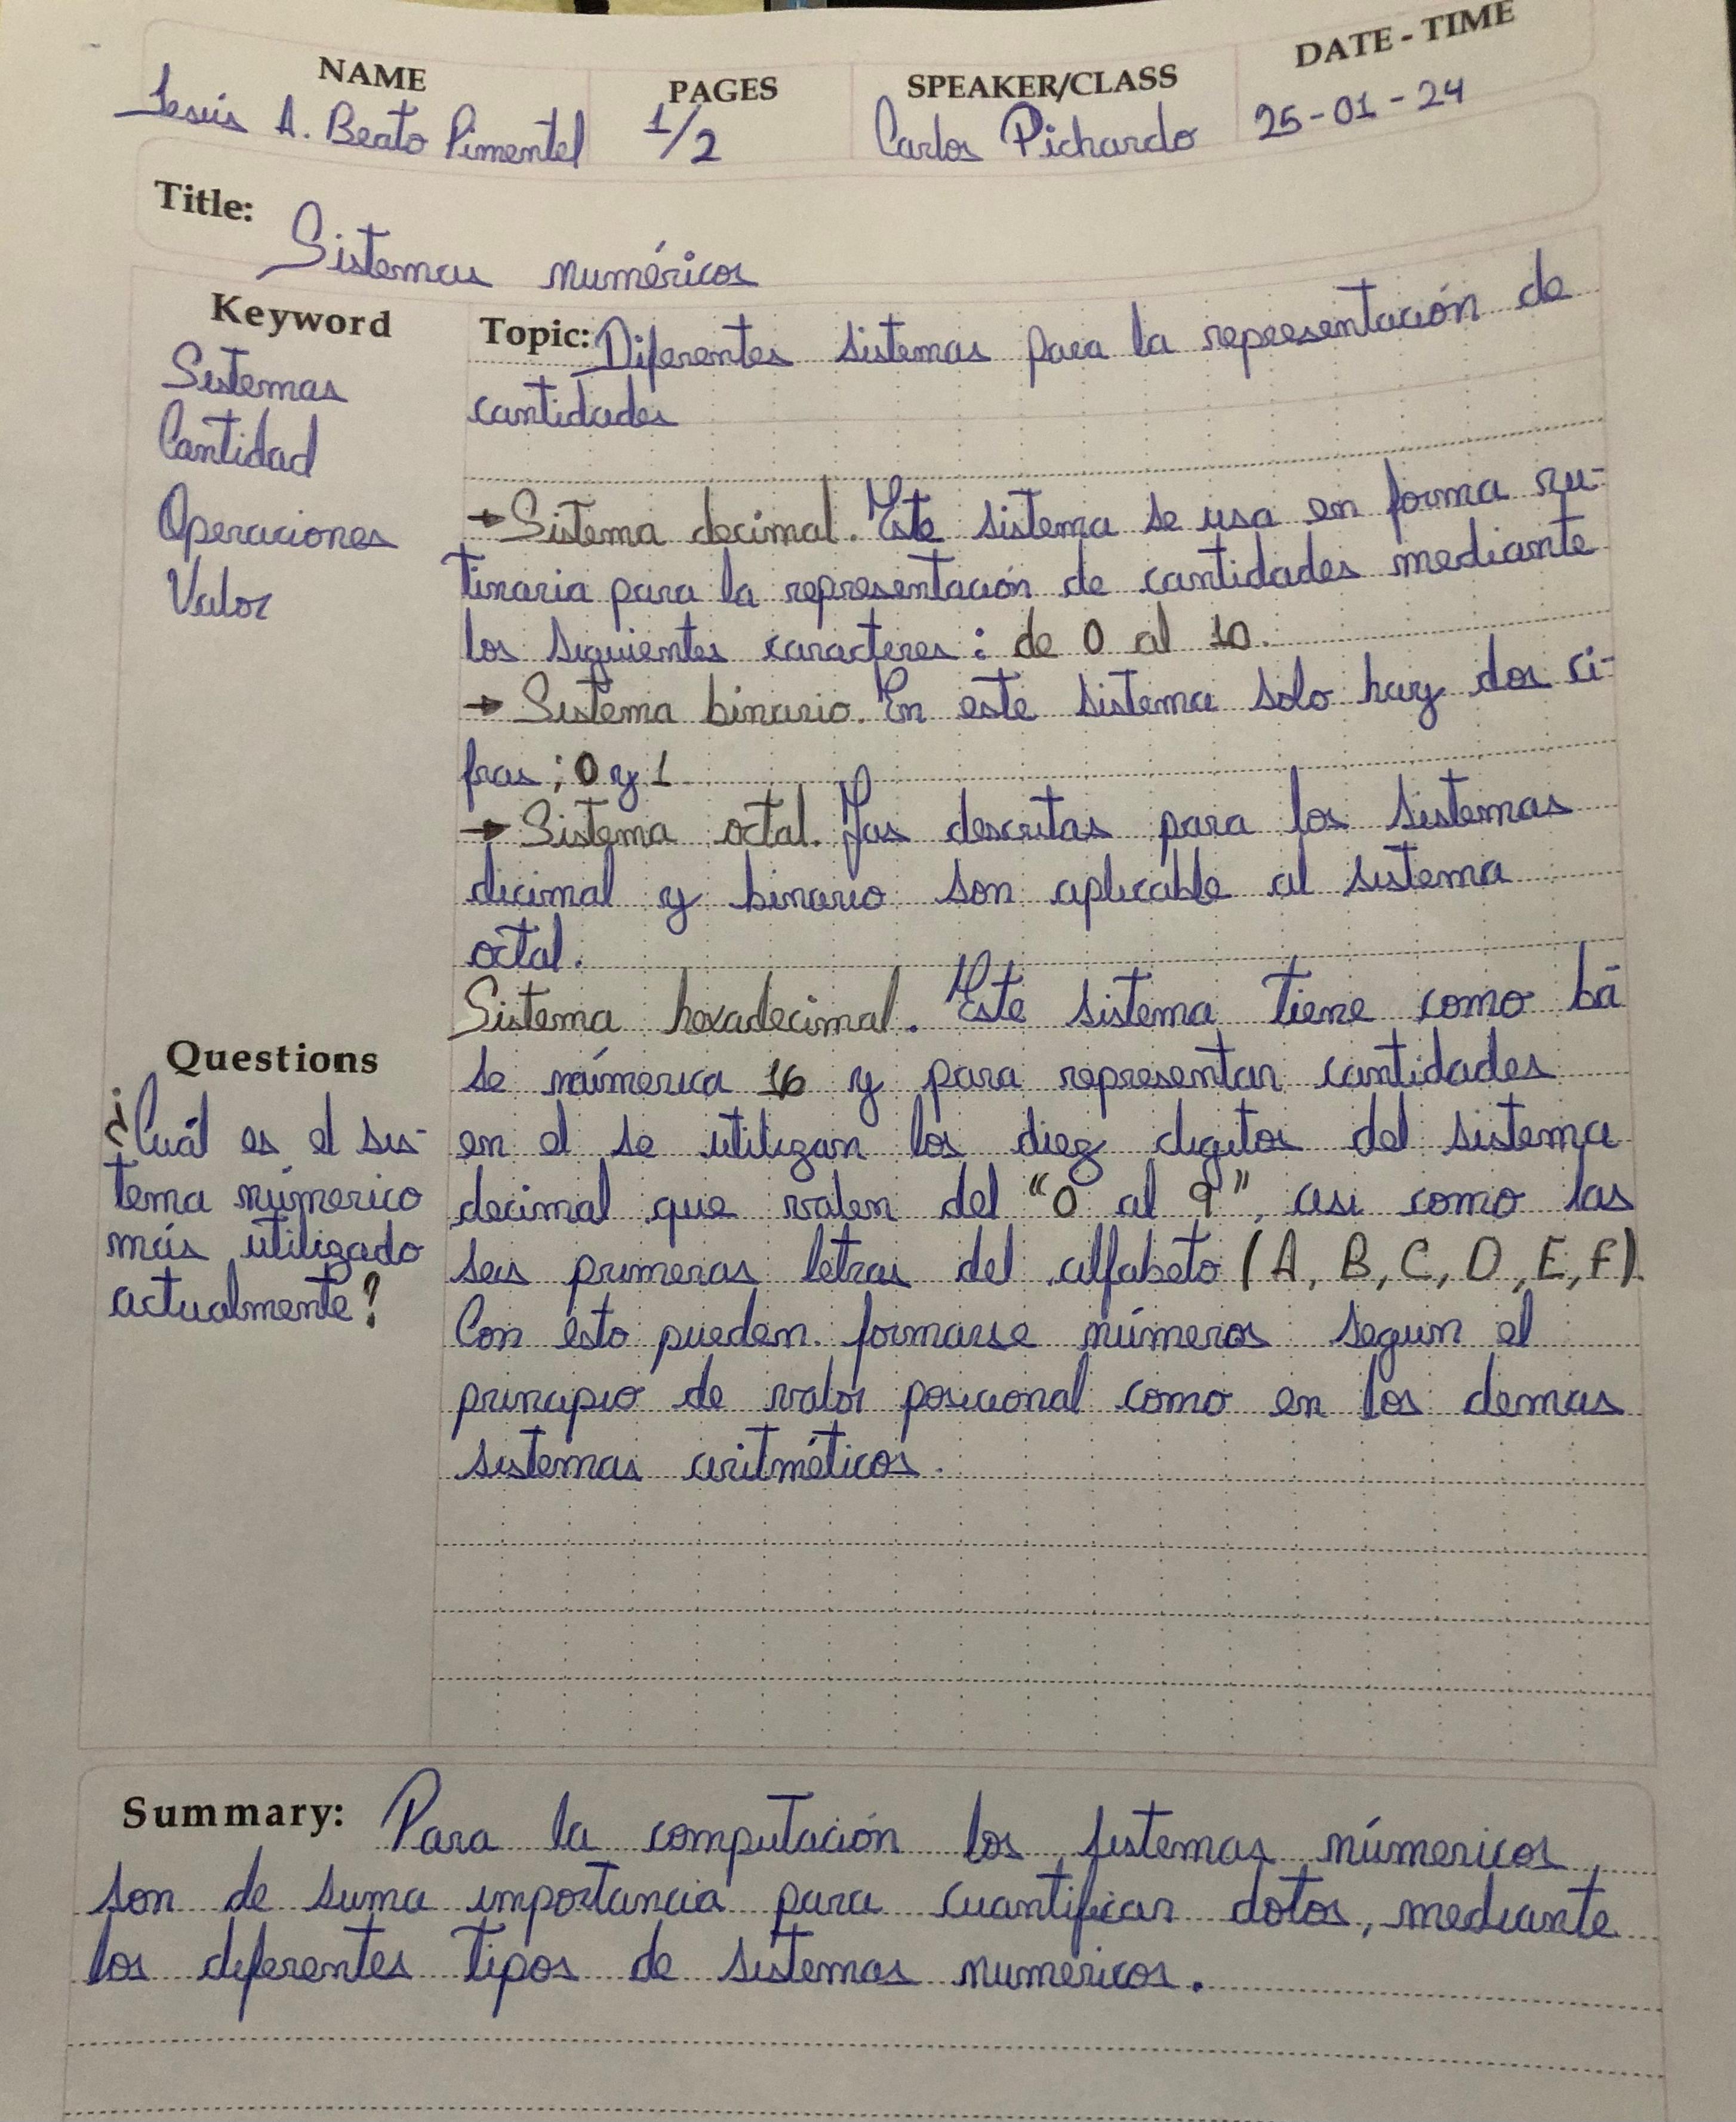 NAME PAGES SPEAKER/CLASS DATE - TIME
Jesús A. Beato Pimentel 1/2 Carlos Pichardo 25-01-24
Title: Sistemas numéricos
Keyword
Sistemas
Cantidad
Operaciones
Valor
Topic: Diferentes sistemas para la representación de
cantidades
→ Sistema decimal. Este sistema se usa en forma ru-
tinaria para la representación de cantidades mediante
los siguientes caracteres: de 0 al 10.
→ Sistema binario. En este sistema solo hay dos ci-
fras; 0 y 1
→ Sistema octal. Las descritas para los sistemas
decimal y binario son aplicable al sistema
octal.
Sistema hexadecimal. Este sistema tiene como ba
se númerica 16 y para representar cantidades
en el se utilizan los diez digitos del sistema
decimal que valen del "0 al 9", asi como las
seis primeras letras del alfabeto (A, B, C, D, E, F).
Con esto pueden formarse números segun el
principio de valor posicional como en los demas
sistemas aritméticos.
Questions
¿Cuál es el sis-
tema númerico
más utilizado
actualmente?
Summary: Para la computación los sistemas númericos
son de suma importancia para cuantificar dotos, mediante
los diferentes tipos de sistemas numericos.